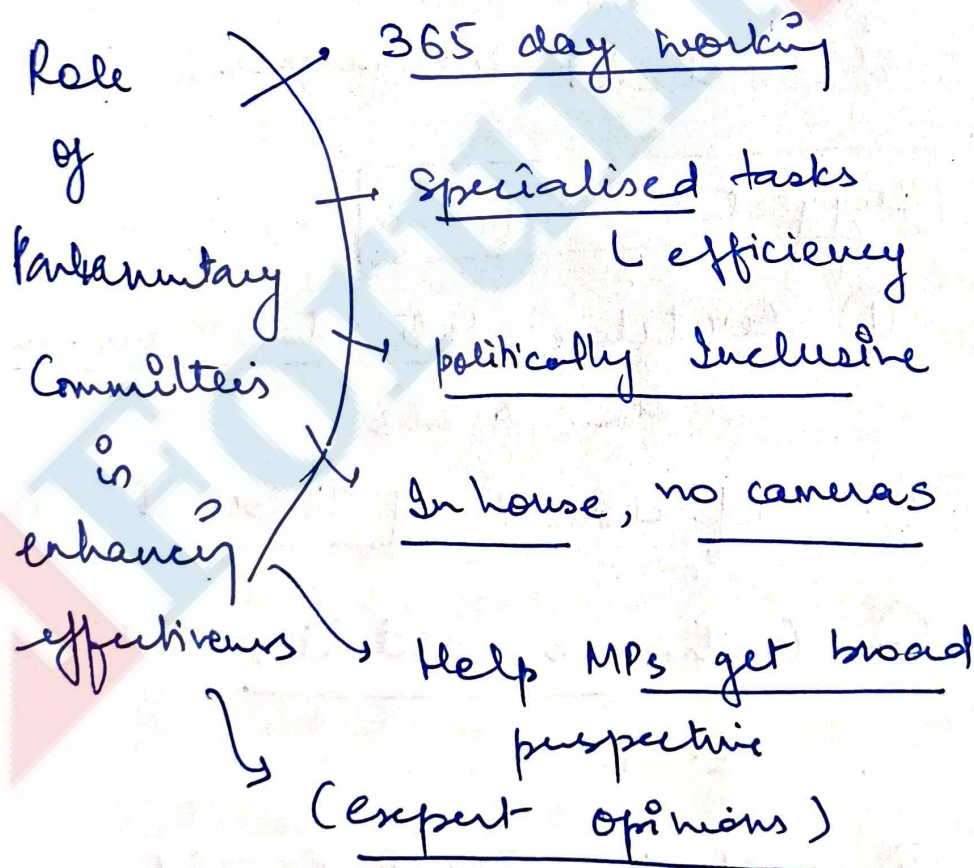 Role
of
Parliamentary
Committees
in
enhancing
effectiveness
365 day working
Specialised tasks
efficiency
politically Inclusive
In house, no cameras
Help MPs get broad
perspective
(expert opinions)
Forum